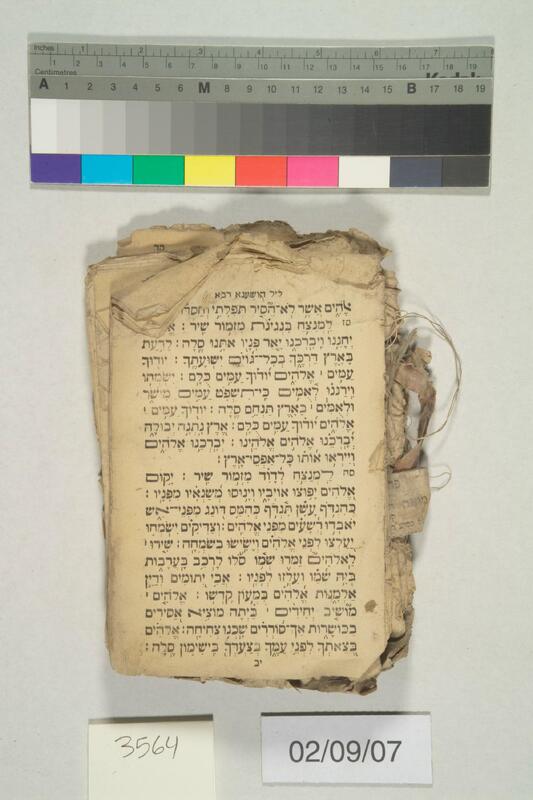 Inches 1 2 3 4 5 6 7
Centimetres 1 2 3 4 5 6 7 8 9 10 11 12 13 14 15 16 17 18 19
Kodak
A 1 2 3 4 5 6 M 8 9 10 11 12 13 14 15 B 17 18 19
ליל הושענא רבא
אֱלֹהִים אֲשֶׁר לֹא־הֵסִיר תְּפִלָּתִי וְחַסְדּוֹ
סז לַמְנַצֵּחַ בִּנְגִינֹת מִזְמוֹר שִׁיר׃
יְחָנֵּנוּ וִיבָרְכֵנוּ יָאֵר פָּנָיו אִתָּנוּ סֶלָה׃ לָדַעַת
בָּאָרֶץ דַּרְכֶּךָ בְּכָל־גּוֹיִם יְשׁוּעָתֶךָ׃ יוֹדוּךָ
עַמִּים ׀ אֱלֹהִים יוֹדוּךָ עַמִּים כֻּלָּם׃ יִשְׂמְחוּ
וִירַנְּנוּ לְאֻמִּים כִּי־תִשְׁפֹּט עַמִּים מִישֹׁר
וּלְאֻמִּים ׀ בָּאָרֶץ תַּנְחֵם סֶלָה׃ יוֹדוּךָ עַמִּים ׀
אֱלֹהִים יוֹדוּךָ עַמִּים כֻּלָּם׃ אֶרֶץ נָתְנָה יְבוּלָהּ
יְבָרְכֵנוּ אֱלֹהִים אֱלֹהֵינוּ׃ יְבָרְכֵנוּ אֱלֹהִים
וְיִירְאוּ אוֹתוֹ כָּל־אַפְסֵי־אָרֶץ׃
סח לַמְנַצֵּחַ לְדָוִד מִזְמוֹר שִׁיר׃ יָקוּם
אֱלֹהִים יָפוּצוּ אוֹיְבָיו וְיָנוּסוּ מְשַׂנְאָיו מִפָּנָיו׃
כְּהִנְדֹּף עָשָׁן תִּנְדֹּף כְּהִמֵּס דּוֹנַג מִפְּנֵי־אֵשׁ
יֹאבְדוּ רְשָׁעִים מִפְּנֵי אֱלֹהִים׃ וְצַדִּיקִים יִשְׂמְחוּ
יַעַלְצוּ לִפְנֵי אֱלֹהִים וְיָשִׂישׂוּ בְשִׂמְחָה׃ שִׁירוּ ׀
לֵאלֹהִים זַמְּרוּ שְׁמוֹ סֹלּוּ לָרֹכֵב בָּעֲרָבוֹת
בְּיָהּ שְׁמוֹ וְעִלְזוּ לְפָנָיו׃ אֲבִי יְתוֹמִים וְדַיַּן
אַלְמָנוֹת אֱלֹהִים בִּמְעוֹן קָדְשׁוֹ׃ אֱלֹהִים ׀
מוֹשִׁיב יְחִידִים ׀ בַּיְתָה מוֹצִיא אֲסִירִים
בַּכּוֹשָׁרוֹת אַךְ־סוֹרֲרִים שָׁכְנוּ צְחִיחָה׃ אֱלֹהִים
בְּצֵאתְךָ לִפְנֵי עַמֶּךָ בְּצַעְדְּךָ בִישִׁימוֹן סֶלָה׃
יב
3564
02/09/07